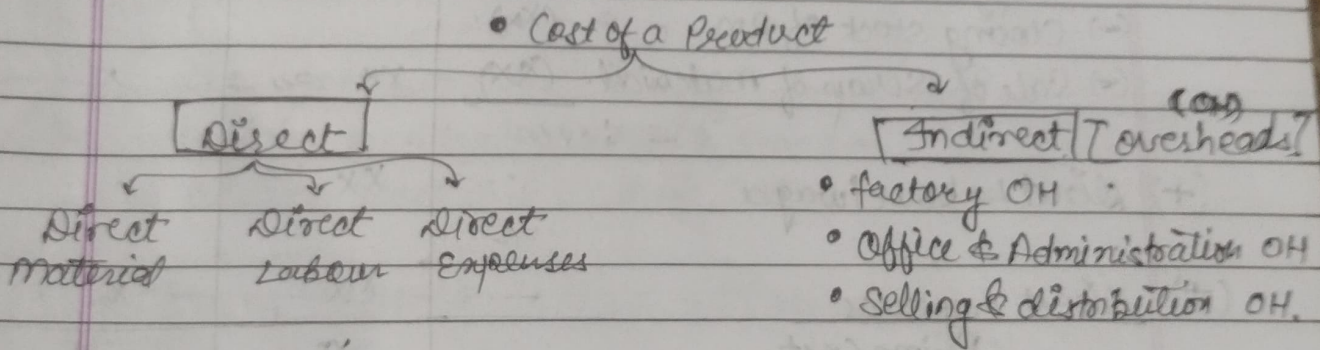 • Cost of a Product
Direct
Direct Material
Direct Labour
Direct Expenses
(OH)
Indirect [overheads]
• factory OH
• Office & Administration OH
• Selling & distribution OH.